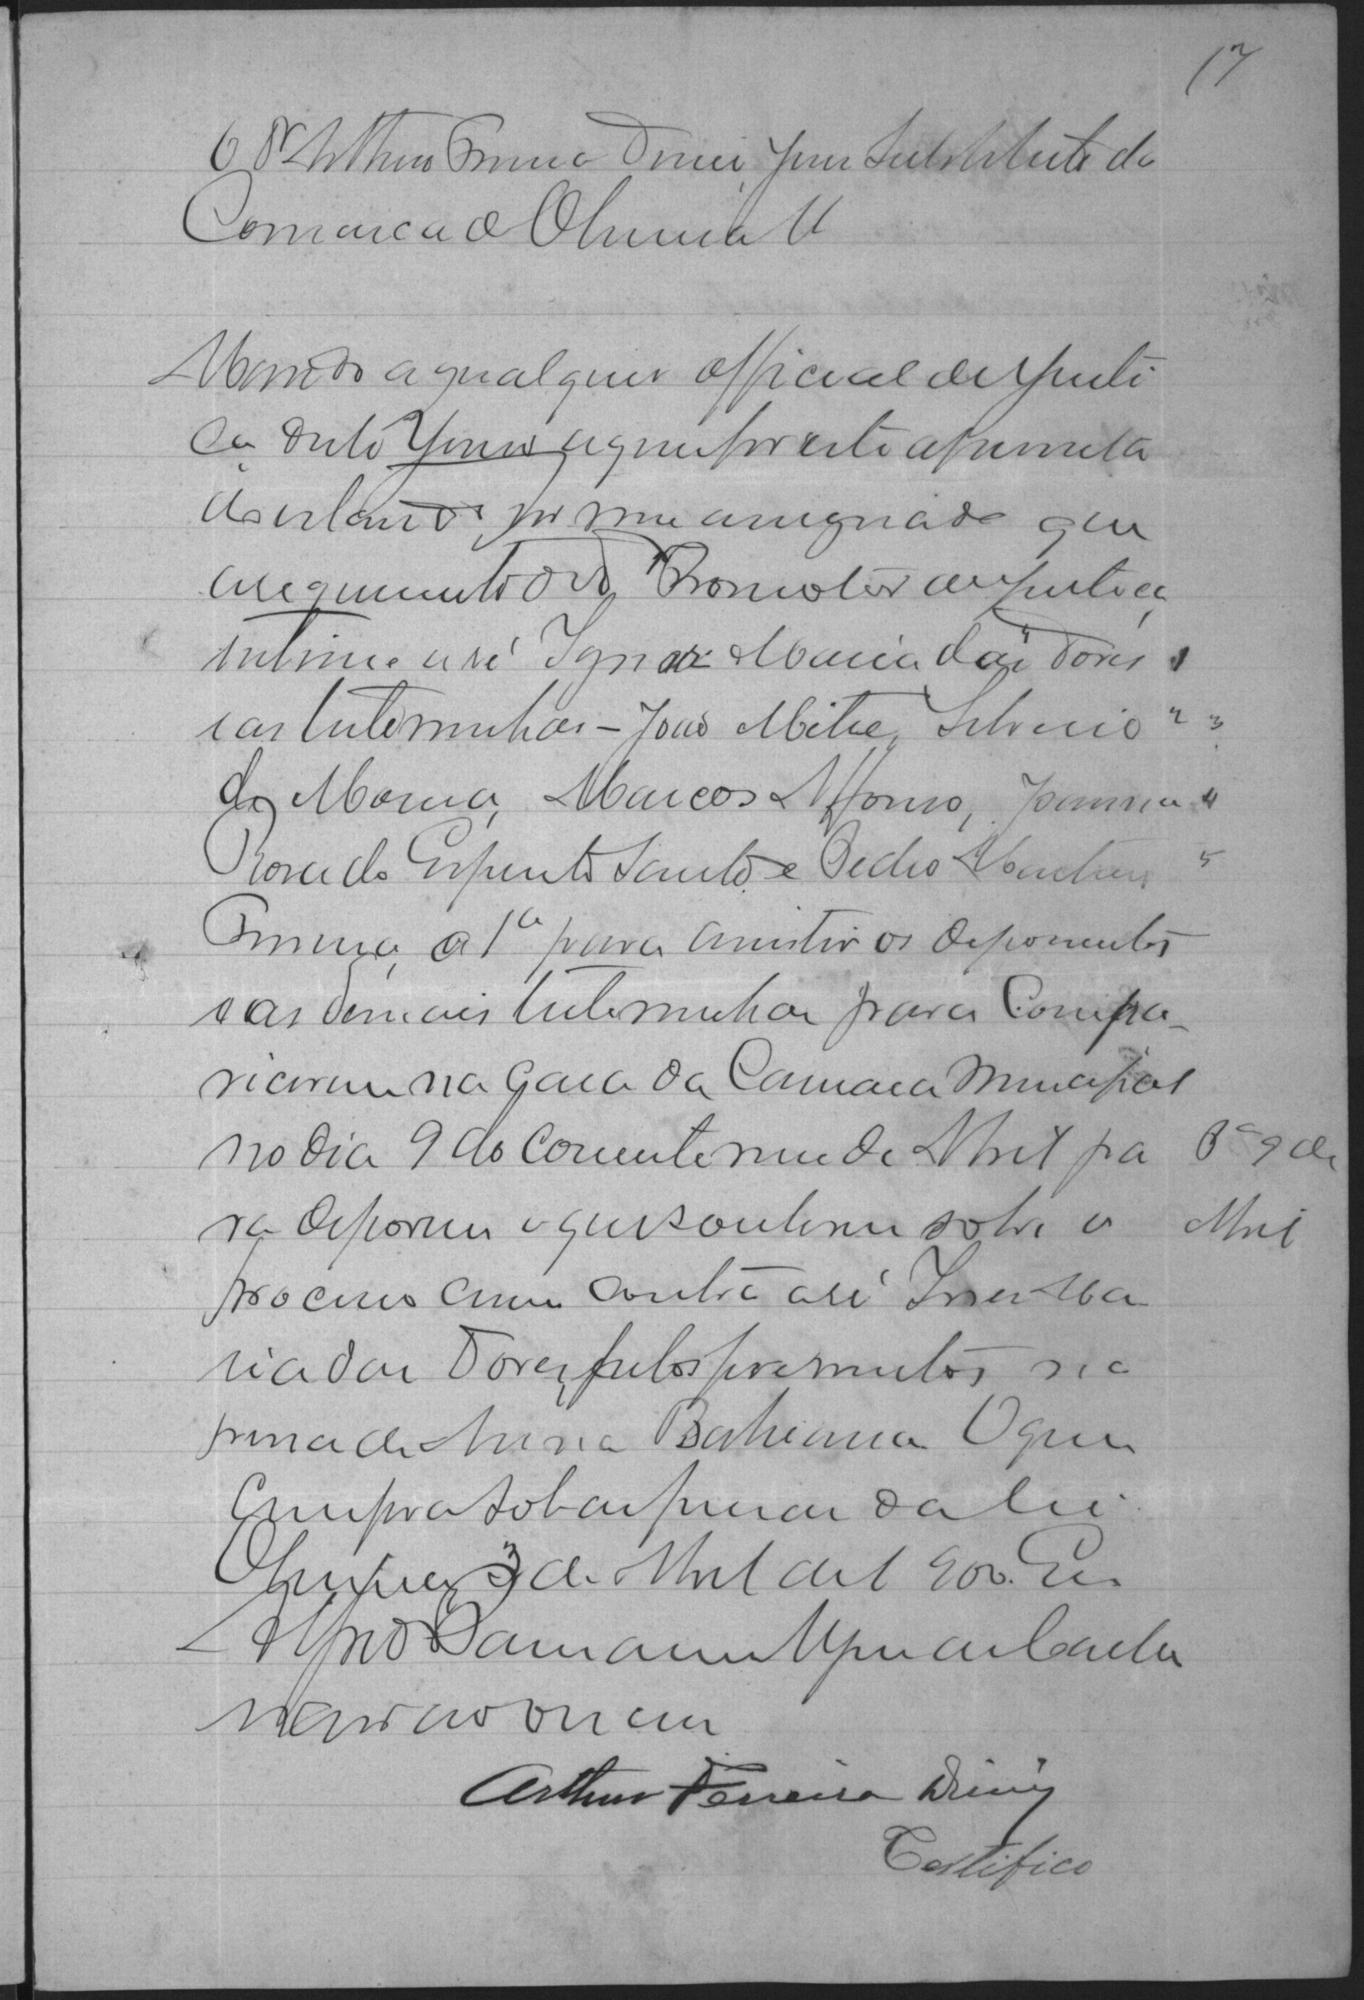 17
O Dr Arthur Ferreira Diniz Juiz Substituto da
Comarca de
Mando a qualquer official de Justi
ça deste Juizo a quem for este apresentado
por mim assignado que
a requerimento do Dr Promotor de Justiça
intime a ré Ignez Maria das Dores 1
e as testemunhas – João Mitre, Silverio 2 3
de Moura, Marcos Affonso, Joanna 4
Rosa do Espirito Santo e Pedro 5
Ferreira, a 1a para assistir os depoimentos
e as demais testemunhas para compa-
recerem na Caza da Camara Municipal
no dia 9 do corrente mez de Abril pa
ra deporem o que souberem sobre o
processo crime contra a ré Ignez Ma
ria das Dores, pelos ferimentos na
pessoa de Anna Bahiana O que
cumpra sob as penas da lei.
3 de Abril de 1900. Eu
nario o escrevi
Dia 9 de
Abril
Arthur Ferreira Diniz
Certifico